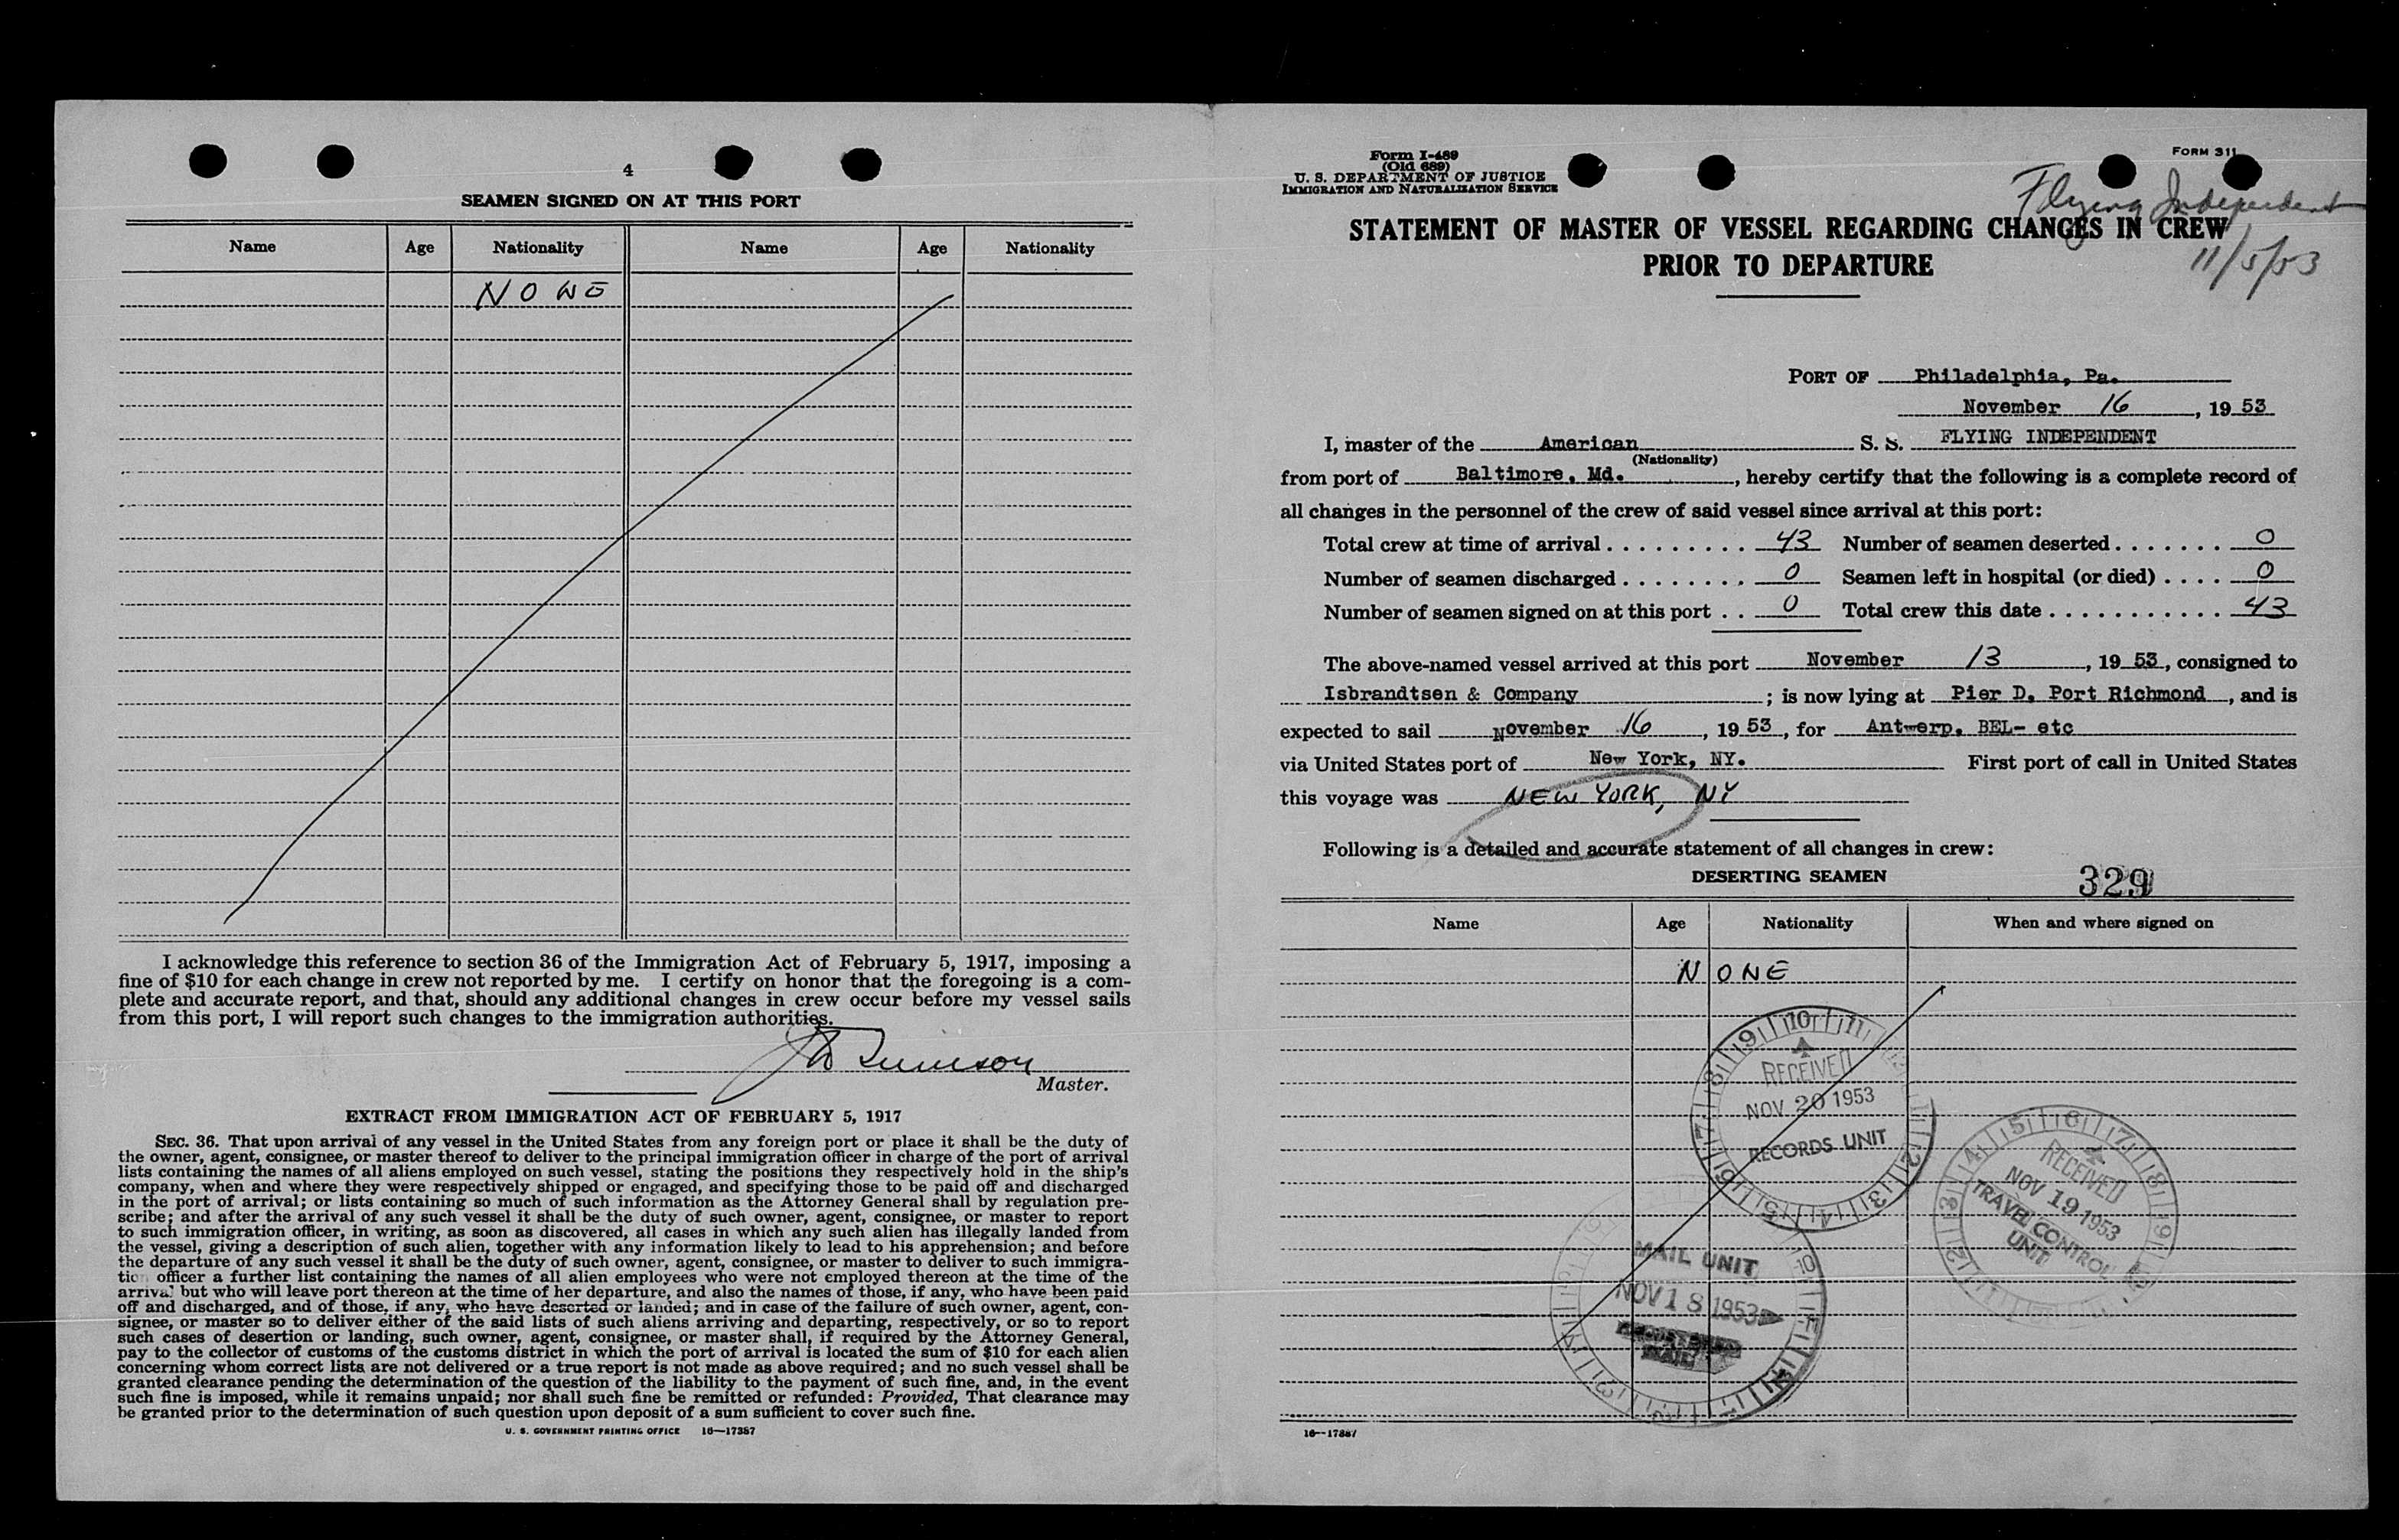 4
SEAMEN SIGNED ON AT THIS PORT
Name Age Nationality Name Age Nationality
NONE
I acknowledge this reference to section 36 of the Immigration Act of February 5, 1917, imposing a
fine of $10 for each change in crew not reported by me. I certify on honor that the foregoing is a com-
plete and accurate report, and that, should any additional changes in crew occur before my vessel sails
from this port, I will report such changes to the immigration authorities.
Master.
EXTRACT FROM IMMIGRATION ACT OF FEBRUARY 5, 1917
SEC. 36. That upon arrival of any vessel in the United States from any foreign port or place it shall be the duty of
the owner, agent, consignee, or master thereof to deliver to the principal immigration officer in charge of the port of arrival
lists containing the names of all aliens employed on such vessel, stating the positions they respectively hold in the ship's
company, when and where they were respectively shipped or engaged, and specifying those to be paid off and discharged
in the port of arrival; or lists containing so much of such information as the Attorney General shall by regulation pre-
scribe; and after the arrival of any such vessel it shall be the duty of such owner, agent, consignee, or master to report
to such immigration officer, in writing, as soon as discovered, all cases in which any such alien has illegally landed from
the vessel, giving a description of such alien, together with any information likely to lead to his apprehension; and before
the departure of any such vessel it shall be the duty of such owner, agent, consignee, or master to deliver to such immigra-
tion officer a further list containing the names of all alien employees who were not employed thereon at the time of the
arrival but who will leave port thereon at the time of her departure, and also the names of those, if any, who have been paid
off and discharged, and of those, if any, who have deserted or landed; and in case of the failure of such owner, agent, con-
signee, or master so to deliver either of the said lists of such aliens arriving and departing, respectively, or so to report
such cases of desertion or landing, such owner, agent, consignee, or master shall, if required by the Attorney General,
pay to the collector of customs of the customs district in which the port of arrival is located the sum of $10 for each alien
concerning whom correct lists are not delivered or a true report is not made as above required; and no such vessel shall be
granted clearance pending the determination of the question of the liability to the payment of such fine, and, in the event
such fine is imposed, while it remains unpaid; nor shall such fine be remitted or refunded: Provided, That clearance may
be granted prior to the determination of such question upon deposit of a sum sufficient to cover such fine.
U. S. GOVERNMENT PRINTING OFFICE 16—17387
Form I-489
(Old 689)
U. S. DEPARTMENT OF JUSTICE
IMMIGRATION AND NATURALIZATION SERVICE
FORM 311
Flying Independent
11/5/53
STATEMENT OF MASTER OF VESSEL REGARDING CHANGES IN CREW
PRIOR TO DEPARTURE
PORT OF Philadelphia, Pa.
November 16, 1953
I, master of the American S. S. FLYING INDEPENDENT
(Nationality)
from port of Baltimore, Md., hereby certify that the following is a complete record of
all changes in the personnel of the crew of said vessel since arrival at this port:
Total crew at time of arrival 43 Number of seamen deserted 0
Number of seamen discharged 0 Seamen left in hospital (or died) 0
Number of seamen signed on at this port 0 Total crew this date 43
The above-named vessel arrived at this port November 13, 1953, consigned to
Isbrandtsen & Company; is now lying at Pier D, Port Richmond, and is
expected to sail November 16, 1953, for Antwerp, BEL- etc
via United States port of New York, NY. First port of call in United States
this voyage was NEW YORK, NY
Following is a detailed and accurate statement of all changes in crew:
DESERTING SEAMEN
329
Name Age Nationality When and where signed on
NONE
RECEIVED
NOV 20 1953
RECORDS UNIT
RECEIVED
NOV 19 1953
TRAVEL CONTROL
UNIT
MAIL UNIT
NOV 18 1953
16—17387